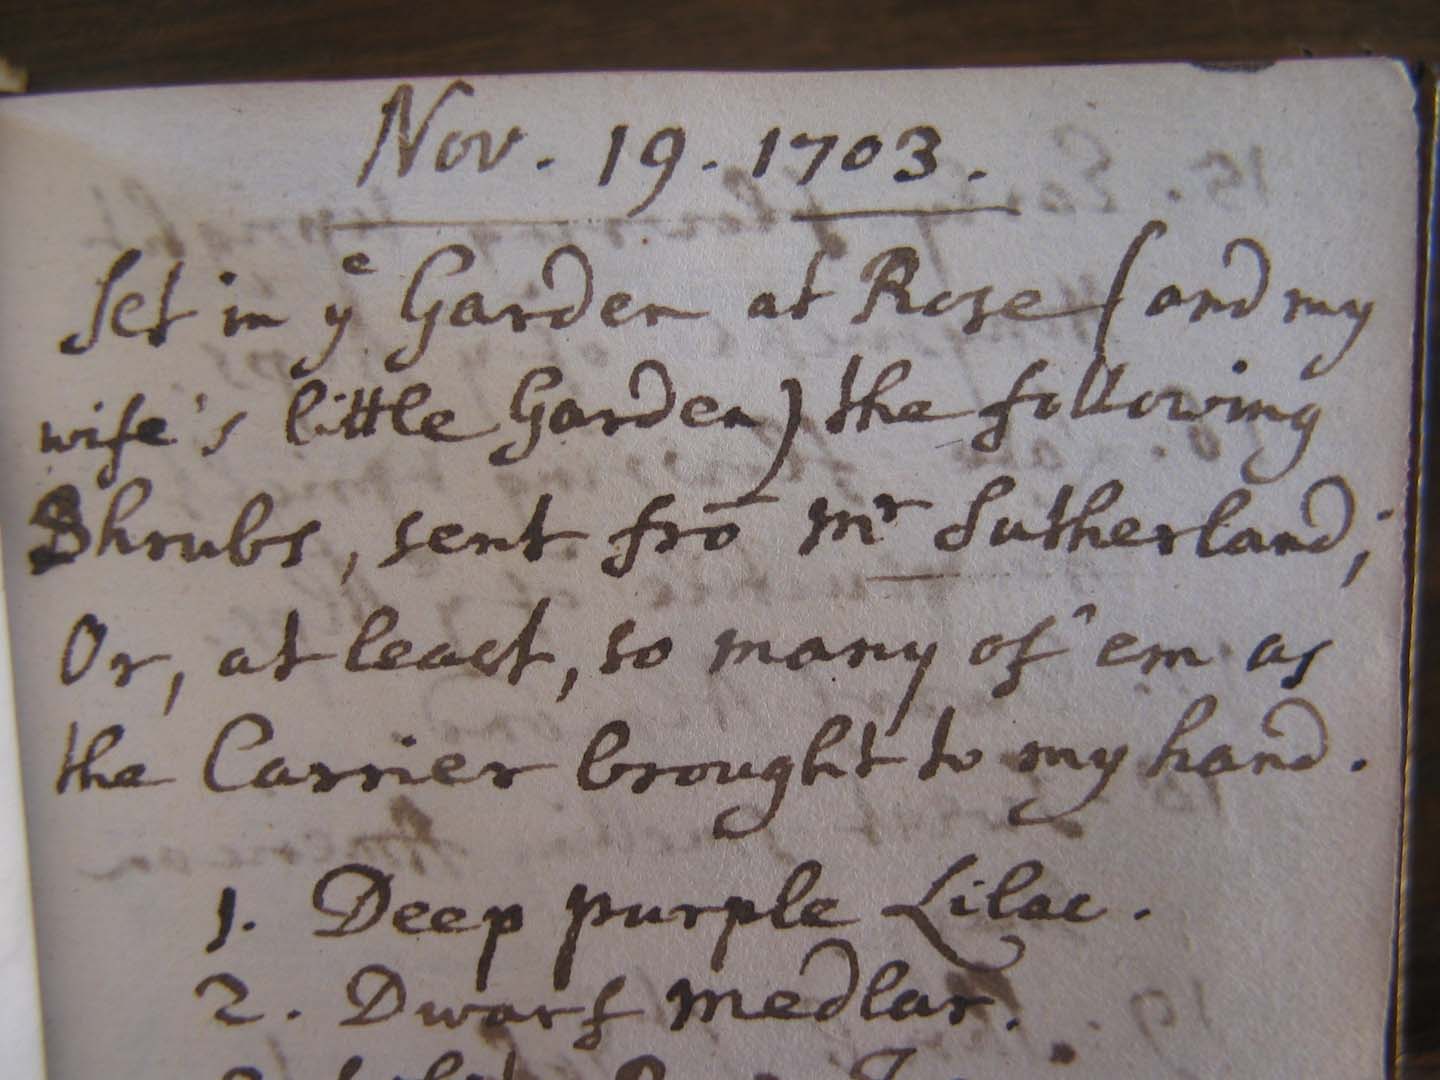 Nov. 19. 1703.
Set in yᵉ Garden at Rose (and my
wife's little Garden) the following
Shrubs, sent frō Mʳ Sutherland;
Or, at least, so many of 'em as
the Carrier brought to my hand.
1. Deep purple Lilac.
2. Dwarf Medlar.